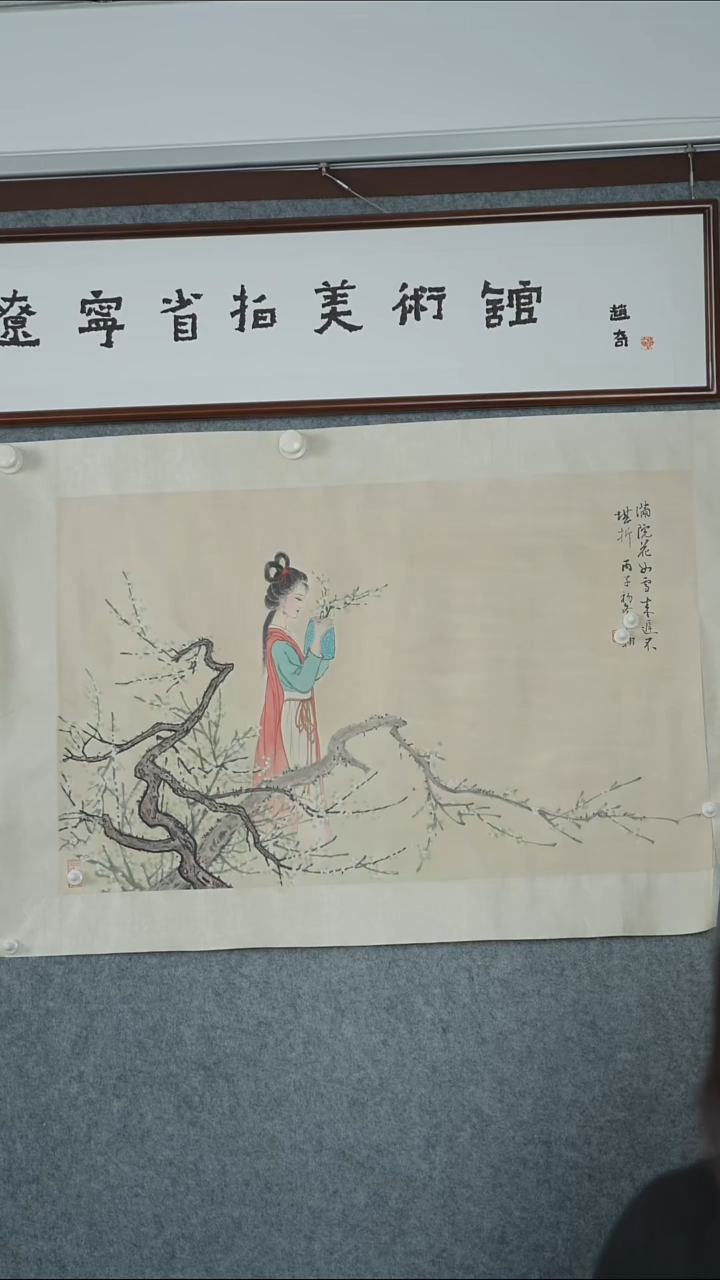 遼寧省拍美術館
趙奇
滿院花如雪来遲不
堪折 丙子初冬